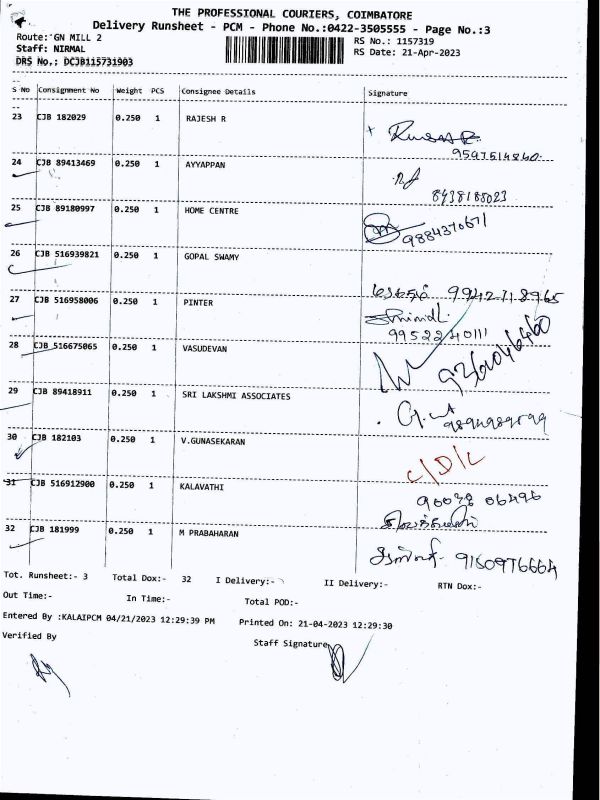 THE PROFESSIONAL COURIERS, COIMBATORE
Delivery Runsheet - PCM - Phone No.:0422-3505555 - Page No.:3
Route: GN MILL 2
RS No.: 1157319
Staff: NIRMAL
RS Date: 21-Apr-2023
DRS No.: DCJB115731903
S No Consignment No Weight PCS Consignee Details Signature
23 CJB 182029 0.250 1 RAJESH R
9597514860
24 CJB 89413469 0.250 1 AYYAPPAN
8438188023
25 CJB 89180997 0.250 1 HOME CENTRE
9884370671
26 CJB 516939821 0.250 1 GOPAL SWAMY
9942718965
27 CJB 516958006 0.250 1 PINTER
9952240111
28 CJB 516675065 0.250 1 VASUDEVAN
29 CJB 89418911 0.250 1 SRI LAKSHMI ASSOCIATES
30 CJB 182103 0.250 1 V.GUNASEKARAN
C/D/L
31 CJB 516912900 0.250 1 KALAVATHI
90038 06496
32 CJB 181999 0.250 1 M PRABAHARAN
9150976664
Tot. Runsheet:- 3 Total Dox:- 32 I Delivery:- II Delivery:- RTN Dox:-
Out Time:- In Time:- Total POD:-
Entered By :KALAIPCM 04/21/2023 12:29:39 PM Printed On: 21-04-2023 12:29:30
Verified By Staff Signature